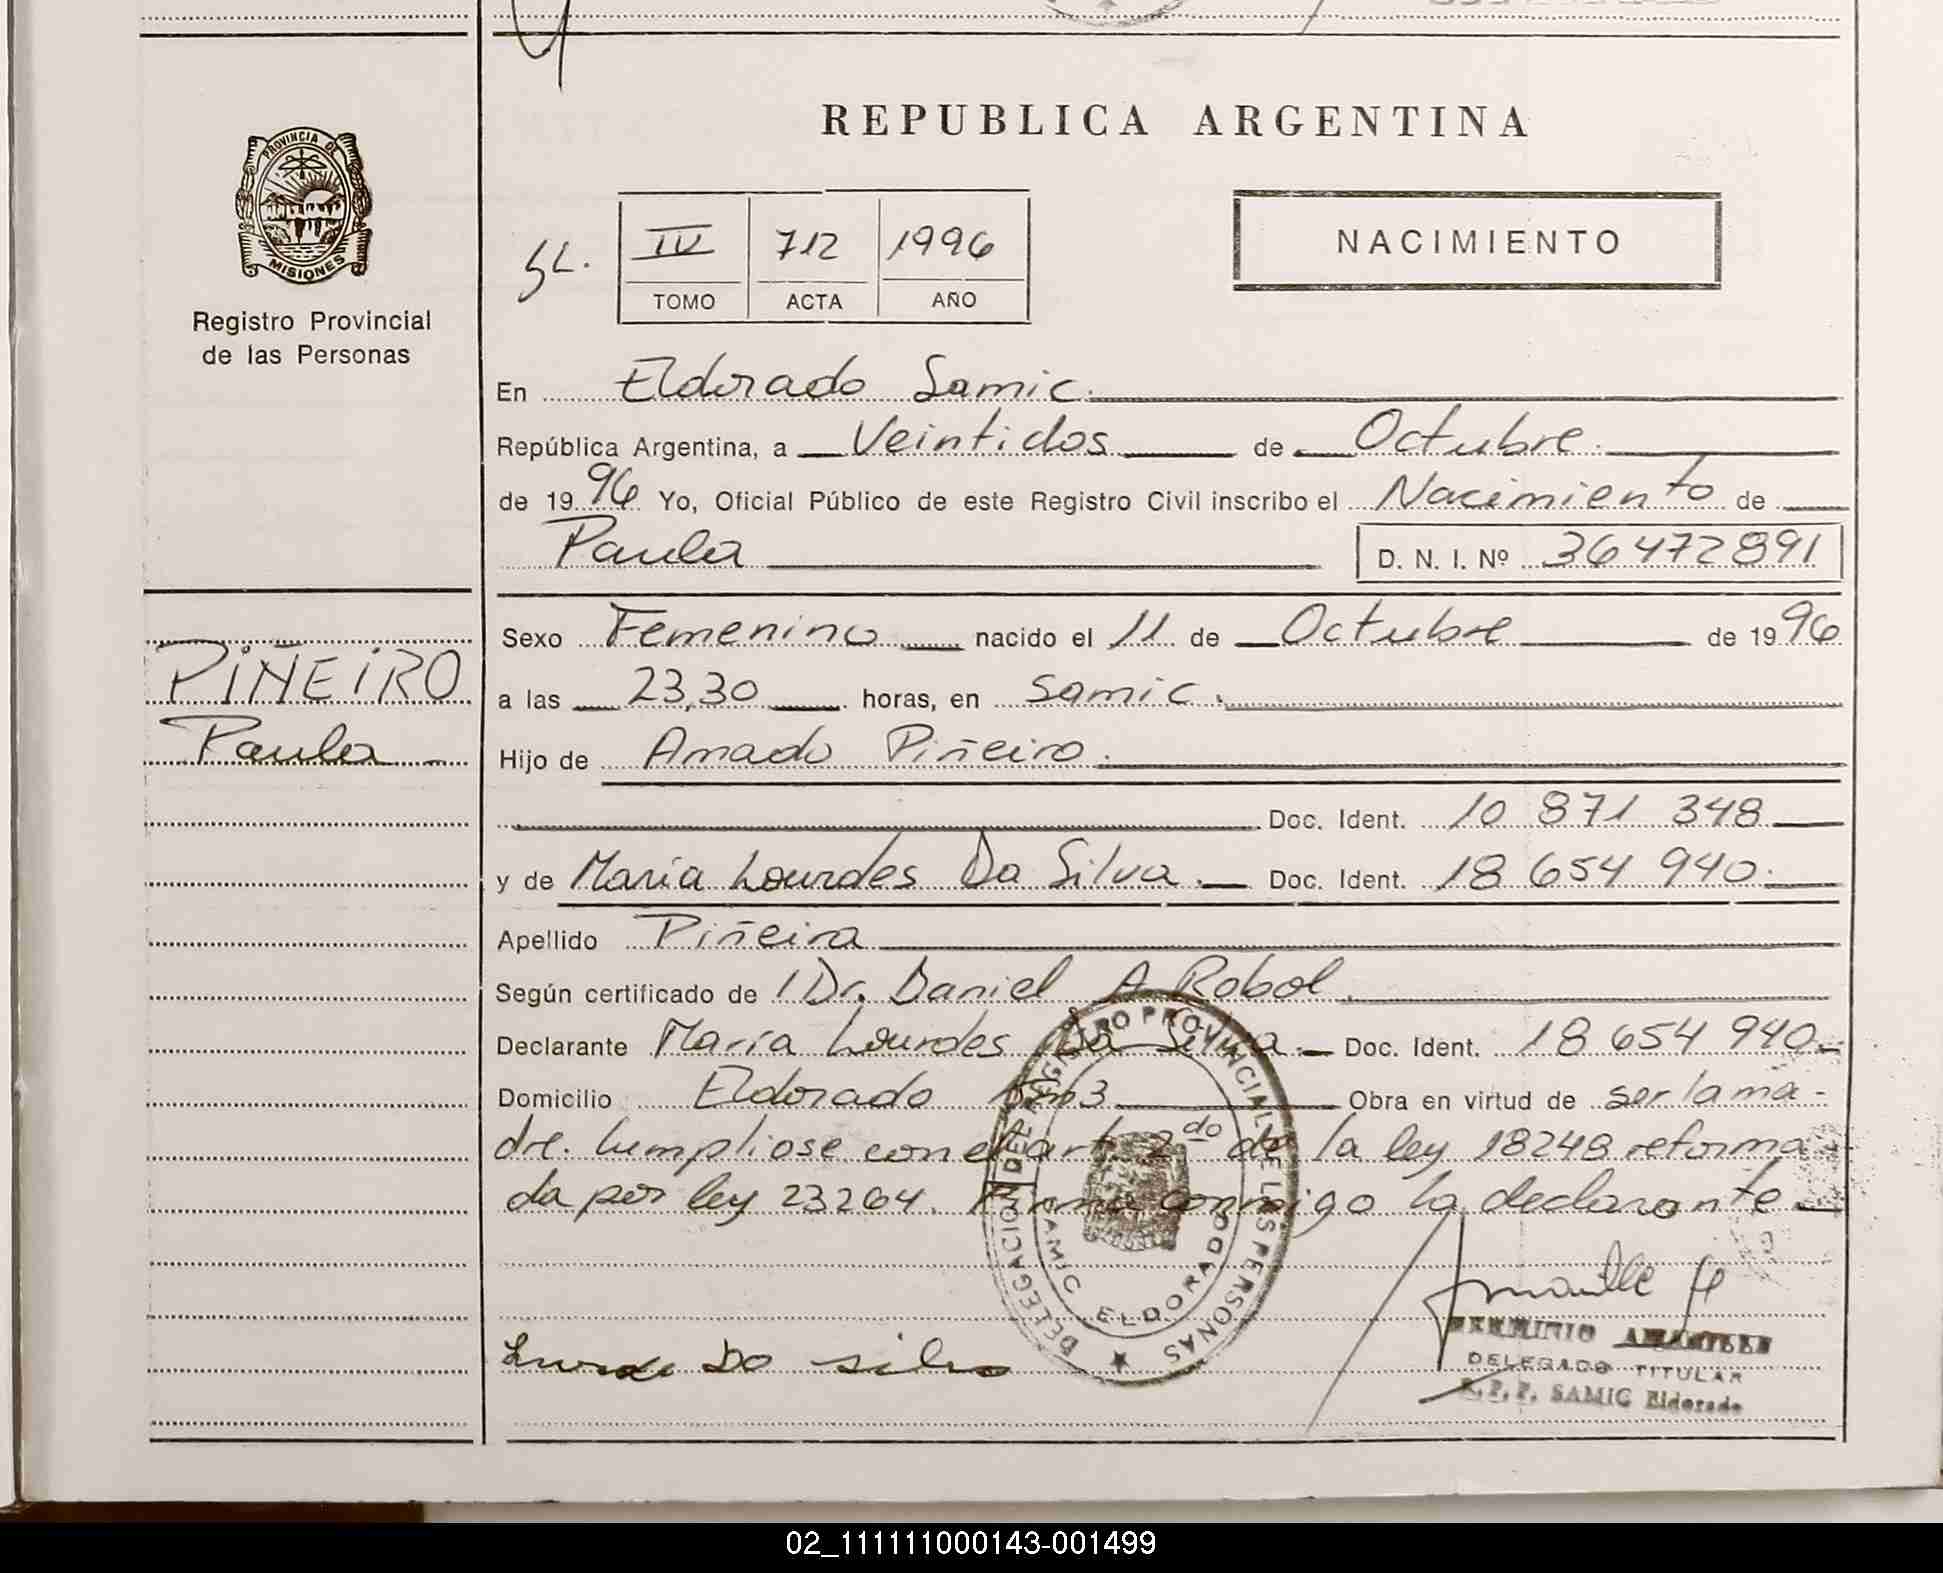 PROVINCIA DE
MISIONES
Registro Provincial
de las Personas
REPUBLICA ARGENTINA
NACIMIENTO
IV 712 1996
TOMO ACTA AÑO
En Eldorado Samic.
República Argentina, a Veintidos de Octubre.
de 1996 Yo, Oficial Público de este Registro Civil inscribo el Nacimiento de
Paula D. N. I. Nº 36472891
Sexo Femenino nacido el 11 de Octubre de 1996
PIÑEIRO
a las 23,30 horas, en Samic.
Paula
Hijo de Amado Piñeiro.
Doc. Ident. 10 871 348
y de María Lourdes Da Silva. Doc. Ident. 18 654 940.
Apellido Piñeira
Según certificado de Dr. Daniel A Robol.
Declarante María Lourdes Da Silva. Doc. Ident. 18 654 940.
Domicilio Eldorado Km3 Obra en virtud de ser la ma-
dre. Cumpliose con el art. 2do de la ley 18248 reforma-
da por ley 23264. Firma conmigo la declarante
DELEGACION DEL REGISTRO PROVINCIAL DE LAS PERSONAS
SAMIC ELDORADO
DELEGADO TITULAR
R.P.P. SAMIC Eldorado
02_111111000143-001499